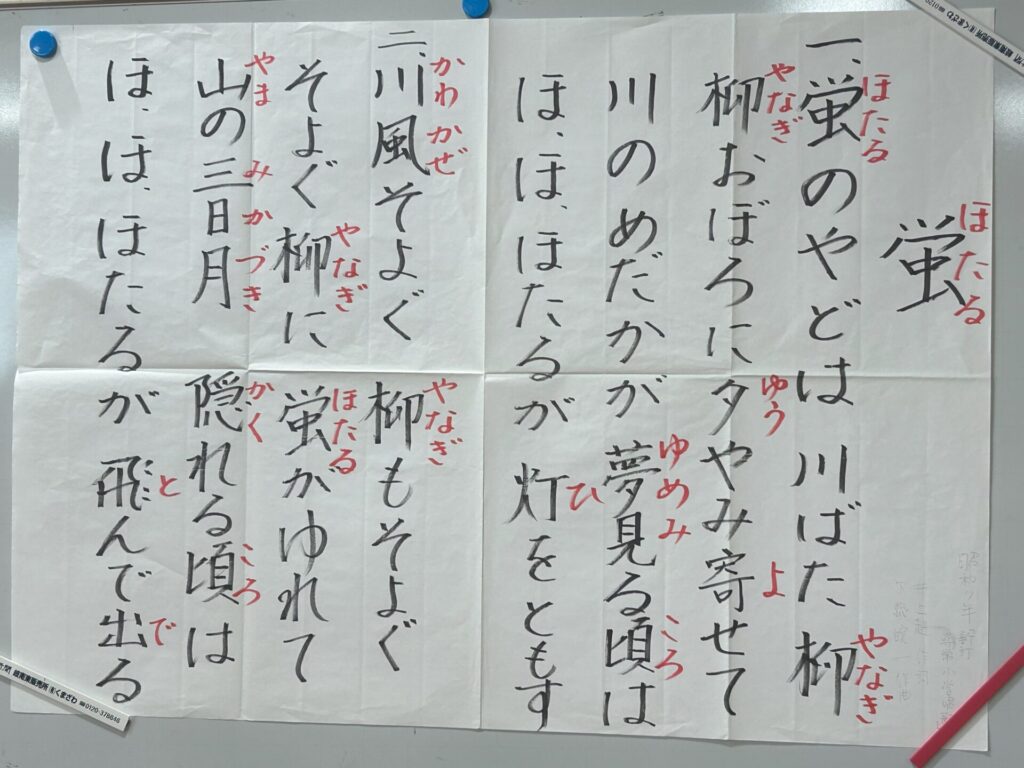 ほたる
蛍
ほたる やなぎ
一、蛍のやどは 川ばた 柳
やなぎ ゆう よ
柳おぼろに 夕やみ寄せて
ゆめみ ころ
川のめだかが 夢見る頃は
ひ
ほ、ほ、ほたるが 灯をともす
かわかぜ やなぎ
二、川風そよぐ 柳もそよぐ
やなぎ ほたる
そよぐ柳に 蛍がゆれて
やま みかづき かく ころ
山の三日月 隠れる頃は
と で
ほ、ほ、ほたるが 飛んで出る
くまざわ ☎0120-378846